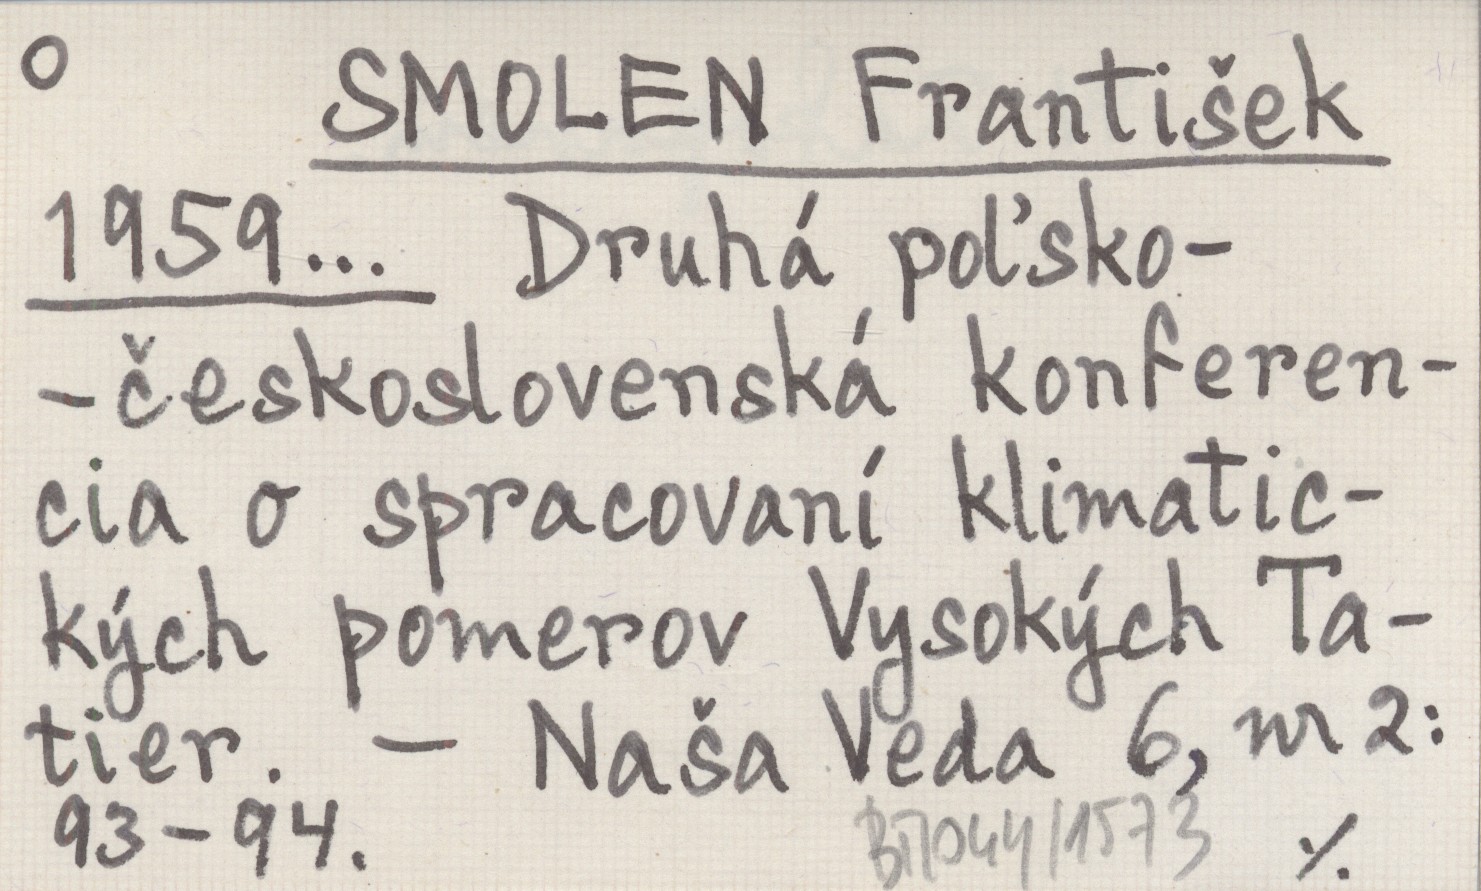 o SMOLEN František
1959... Druhá poľsko-
-československá konferen-
cia o spracovaní klimatic-
kých pomerov Vysokých Ta-
tier. - Naša Veda 6, nr 2:
93-94. ./.